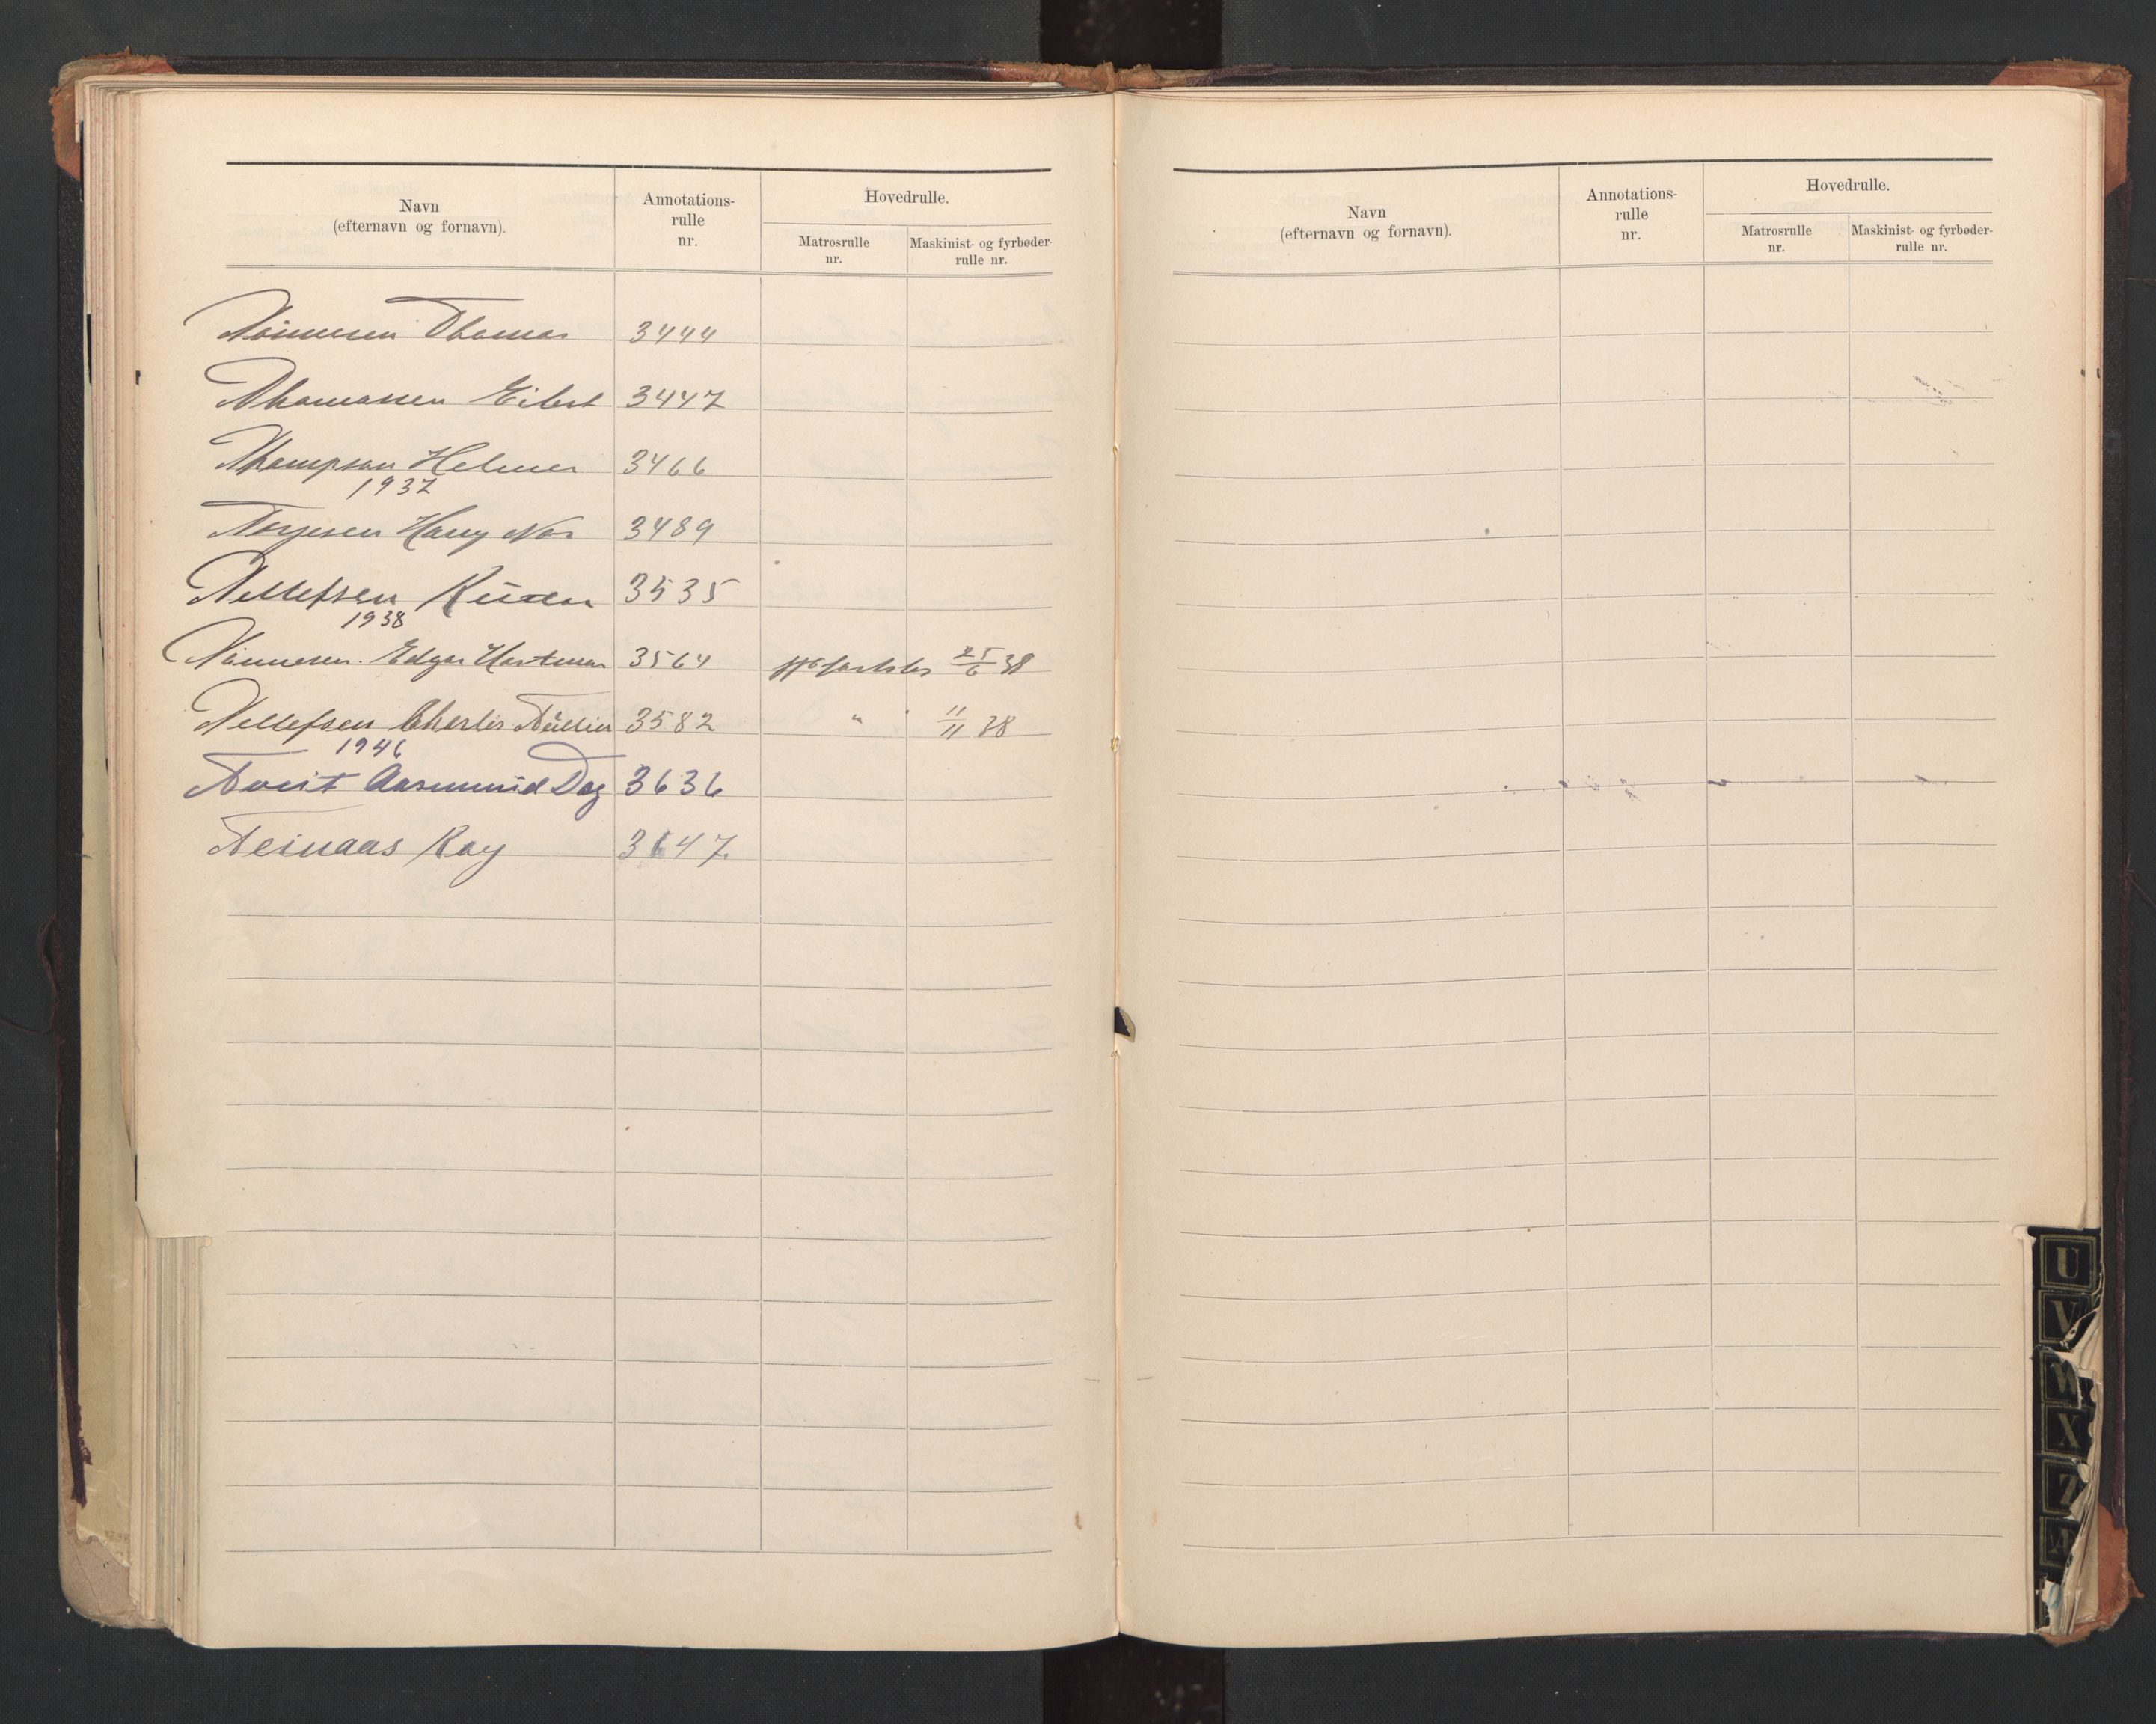 Navn
(efternavn og fornavn).
Annotations-
rulle
nr.
Hovedrulle.
Matrosrulle
nr.
Maskinist- og fyrbøder-
rulle nr.
Tønnesen Thomas 3444
Thomassen Eilert 3447
Thompson Helmer 3466
1937
Torjesen Harry Nor 3489
Tellefsen 3535
1938
Tønnesen Edgar Hartman 3564 25/6 38
Tellefsen Charles 3582 " 11/11 38
1946
Tveit Aasmund Dag 3636
Teinaas Kay 3647
Navn
(efternavn og fornavn).
Annotations-
rulle
nr.
Hovedrulle.
Matrosrulle
nr.
Maskinist- og fyrbøder-
rulle nr.
U
V
W
X
Z